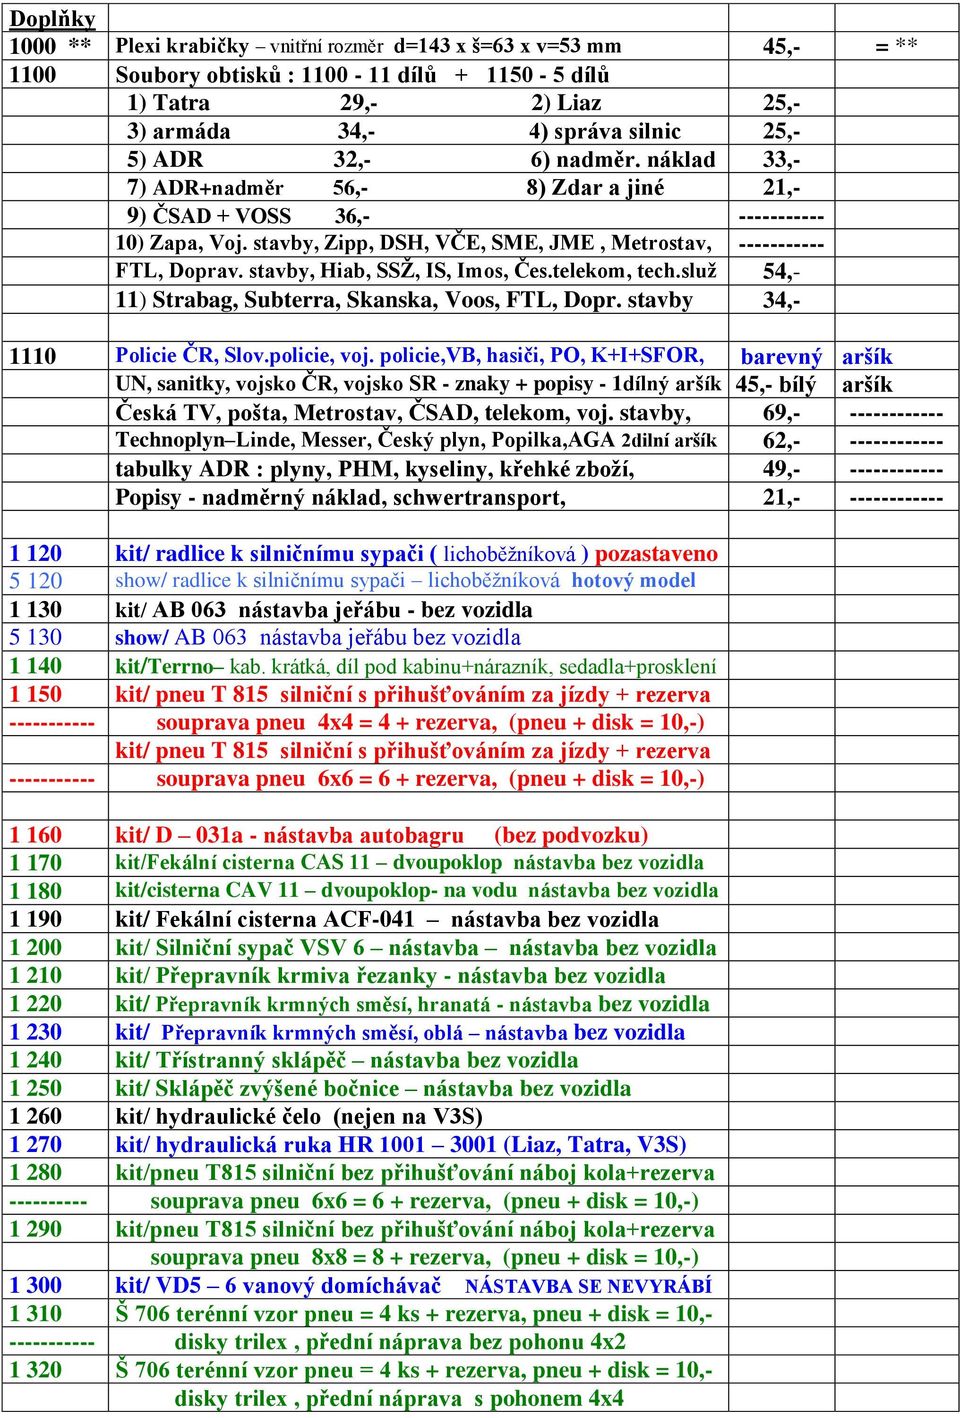 Doplňky
1000 ** Plexi krabičky – vnitřní rozměr d=143 x š=63 x v=53 mm 45,- = **
1100 Soubory obtisků : 1100 - 11 dílů + 1150 - 5 dílů
1) Tatra 29,- 2) Liaz 25,-
3) armáda 34,- 4) správa silnic 25,-
5) ADR 32,- 6) nadměr. náklad 33,-
7) ADR+nadměr 56,- 8) Zdar a jiné 21,-
9) ČSAD + VOSS 36,- -----------
10) Zapa, Voj. stavby, Zipp, DSH, VČE, SME, JME , Metrostav, -----------
FTL, Doprav. stavby, Hiab, SSŽ, IS, Imos, Čes.telekom, tech.služ 54,-
11) Strabag, Subterra, Skanska, Voos, FTL, Dopr. stavby 34,-
1110 Policie ČR, Slov.policie, voj. policie,VB, hasiči, PO, K+I+SFOR, barevný aršík
UN, sanitky, vojsko ČR, vojsko SR - znaky + popisy - 1dílný aršík 45,- bílý aršík
Česká TV, pošta, Metrostav, ČSAD, telekom, voj. stavby, 69,- ------------
Technoplyn–Linde, Messer, Český plyn, Popilka,AGA 2dílní aršík 62,- ------------
tabulky ADR : plyny, PHM, kyseliny, křehké zboží, 49,- ------------
Popisy - nadměrný náklad, schwertransport, 21,- ------------
1 120 kit/ radlice k silničnímu sypači ( lichoběžníková ) pozastaveno
5 120 show/ radlice k silničnímu sypači – lichoběžníková hotový model
1 130 kit/ AB 063 nástavba jeřábu - bez vozidla
5 130 show/ AB 063 nástavba jeřábu bez vozidla
1 140 kit/Terrno– kab. krátká, díl pod kabinu+nárazník, sedadla+prosklení
1 150 kit/ pneu T 815 silniční s přihušťováním za jízdy + rezerva
----------- souprava pneu 4x4 = 4 + rezerva, (pneu + disk = 10,-)
kit/ pneu T 815 silniční s přihušťováním za jízdy + rezerva
----------- souprava pneu 6x6 = 6 + rezerva, (pneu + disk = 10,-)
1 160 kit/ D – 031a - nástavba autobagru (bez podvozku)
1 170 kit/Fekální cisterna CAS 11 – dvoupoklop nástavba bez vozidla
1 180 kit/cisterna CAV 11 – dvoupoklop- na vodu nástavba bez vozidla
1 190 kit/ Fekální cisterna ACF-041 – nástavba bez vozidla
1 200 kit/ Silniční sypač VSV 6 – nástavba – nástavba bez vozidla
1 210 kit/ Přepravník krmiva řezanky - nástavba bez vozidla
1 220 kit/ Přepravník krmných směsí, hranatá - nástavba bez vozidla
1 230 kit/ Přepravník krmných směsí, oblá – nástavba bez vozidla
1 240 kit/ Třístranný sklápěč – nástavba bez vozidla
1 250 kit/ Sklápěč zvýšené bočnice – nástavba bez vozidla
1 260 kit/ hydraulické čelo (nejen na V3S)
1 270 kit/ hydraulická ruka HR 1001 – 3001 (Liaz, Tatra, V3S)
1 280 kit/pneu T815 silniční bez přihušťování náboj kola+rezerva
---------- souprava pneu 6x6 = 6 + rezerva, (pneu + disk = 10,-)
1 290 kit/pneu T815 silniční bez přihušťování náboj kola+rezerva
souprava pneu 8x8 = 8 + rezerva, (pneu + disk = 10,-)
1 300 kit/ VD5 – 6 vanový domíchávač NÁSTAVBA SE NEVYRÁBÍ
1 310 Š 706 terénní vzor pneu = 4 ks + rezerva, pneu + disk = 10,-
----------- disky trilex , přední náprava bez pohonu 4x2
1 320 Š 706 terénní vzor pneu = 4 ks + rezerva, pneu + disk = 10,-
disky trilex , přední náprava s pohonem 4x4